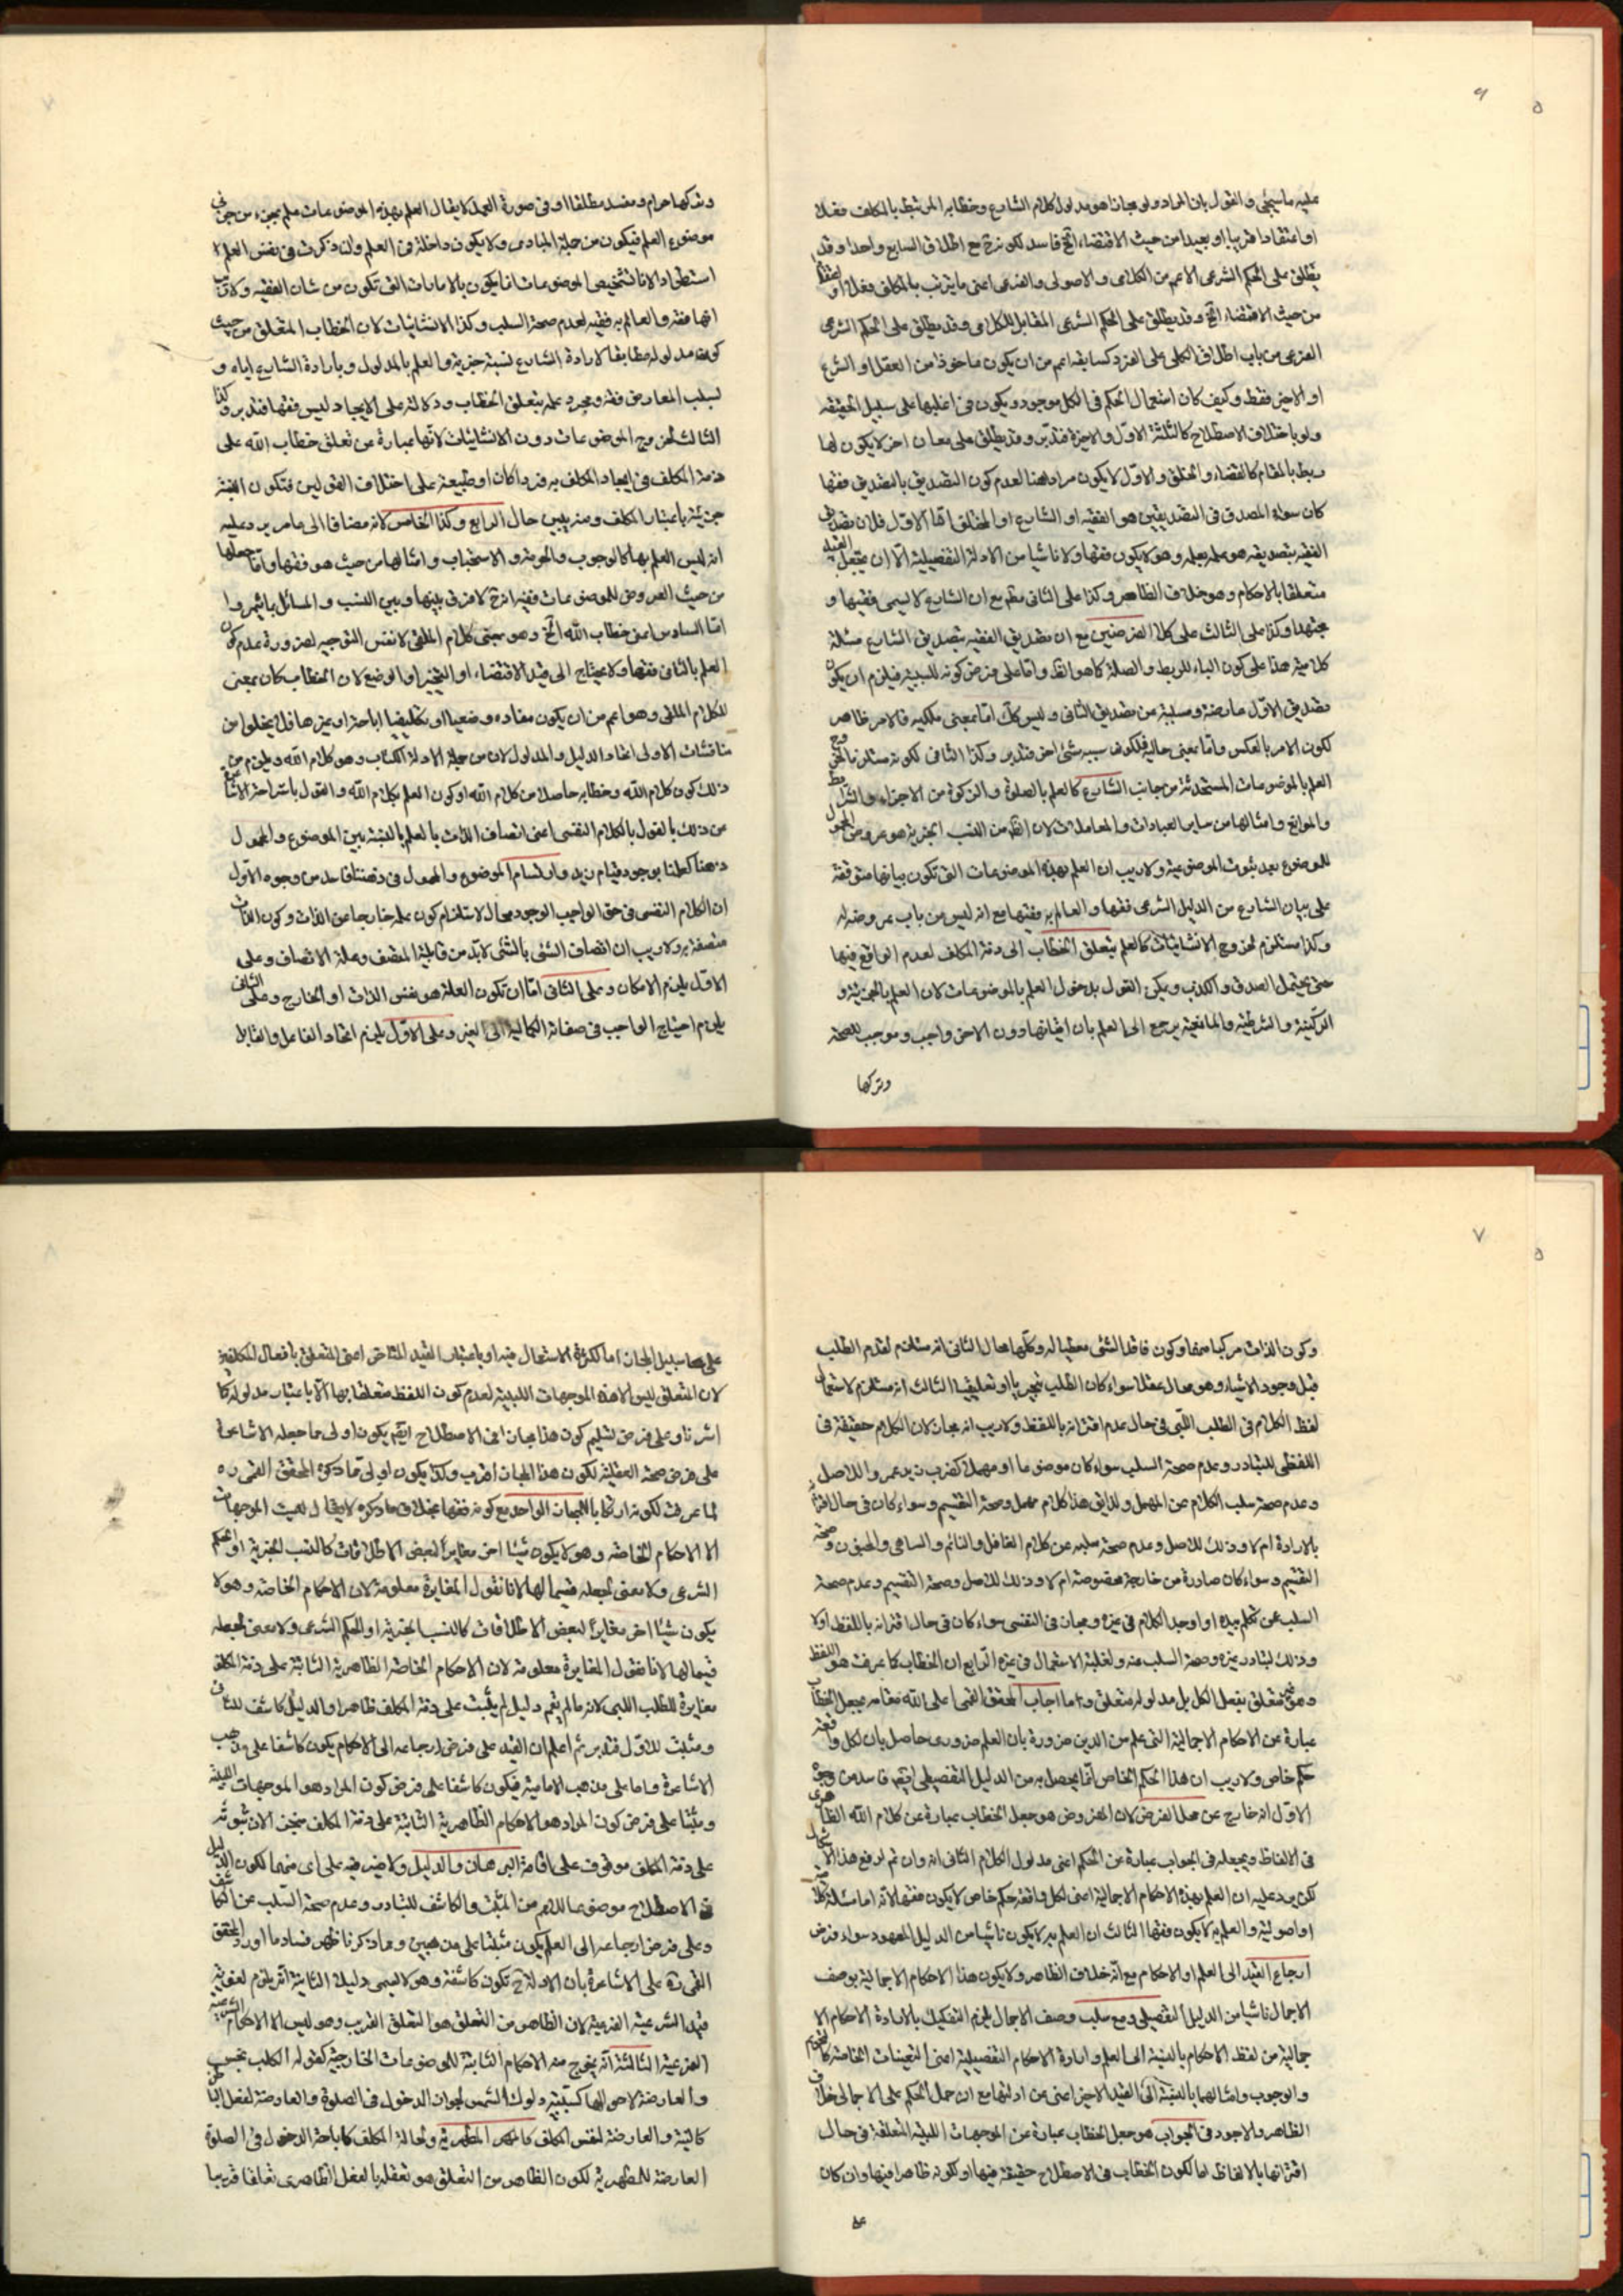 عليه ما سيجئ والقول بان المراد ولو مجازا هو مدلول كلام الشارع وخطابه المرتبط بالمكلف فعلا
او اعتقادا قريبا او بعيدا من حيث الاقتضاء الخ فاسد لكونه مع اطلاق السابع واحدا وقد
يطلق على الحكم الشرعى الاعم من الكلامى والاصولى والفرعى اعنى ما يترتب بالمكلف فعلا او اعتقادا
من حيث الاقتضاء الخ وقد يطلق على الحكم الشرعى المقابل للكلامى وقد يطلق على الحكم الشرعى
الفرعى من باب اطلاق الكلى على الفرد كسابقه اعم من ان يكون ماخوذا من العقل او الشرع
او الاخير فقط وكيف كان استعمال الحكم فى الكل موجود ويكون فى اغلبها على سبيل الحقيقة
ولو باختلاف الاصطلاح كالثلثة الاول والاخيرة فتدبر وقد يطلق على معان اخر لا يكون لها
ربط بالمقام كالقضاء والخلق والاول لا يكون مرادا هنا لعدم كون التصديق بالتصديق فقها
كان سواء المصدق فى التصديقين هو الفقيه او الشارع او المختلق اما الاول فلان تصديق
الفقيه بتصديقه هو علمه بعلمه وهو لا يكون فقها ولا ناشيا من الادلة التفصيلية الا ان يجعل القيد
متعلقا بالاحكام وهو خلاف الظاهر وكذا على الثانى مع ان الشارع لا يسمى فقيها و
مجتهدا وكذا على الثالث على كلا الفرضين مع ان تصديق الفقيه بتصديق الشارع مسئلة
كلامية هذا على كون الباء للربط والصلة كما هو الظ واما على فرض كونه للسببية فيلزم ان يكون
تصديق الاول عارضة ومسببة من تصديق الثانى وليس كك اما بمعنى ملكية فالامر ظاهر
لكون الامر بالعكس واما بمعنى حالية فلكون سببه شئ اخر فتدبر وكذا الثانى لكونه مستلزما لخروج
العلم بالموضوعات المستحدثة من جانب الشارع كالعلم بالصلوة والزكوة من الاجزاء والشرايط
والموانع وامثالها من ساير العبادات والمعاملات لان الظ من النسب الخبرية هو عروض المحمول
للموضوع بعد ثبوت الموضوعية ولا ريب ان العلم بهذه الموضوعات التى تكون بيانها متوقفة
على بيان الشارع من الدليل الشرعى فقها والعالم به فقيها مع انه ليس من باب عروضه له
وكذا مستلزم لخروج الانشائيات كالعلم بتعلق الخطاب الى ذمة المكلف لعدم الواقع فيها
حتى يحتمل الصدق والكذب ويمكن القول بدخول العلم بالموضوعات لان العلم بالجزئية و
الركنية والشرطية والمانعية يرجع الى العلم بان اتيانها دون الاخر واجب وموجب للصحة
وتركها
وتركها حرام ومفسد مطلقا او فى صورة العمد لا يقال العلم بهذه الموضوعات علم بجزء من جزئى
موضوع العلم فيكون من جملة المبادى ولا يكون داخلة فى العلم ولذا ذكرت فى نفس العلم
استطرادا لانا تشخيص الموضوعات انما يكون بالامارات التى تكون من شان الفقيه ولا ريب
انها فقه والعالم به فقيه لعدم صحة السلب وكذا الانشائيات لان الخطاب المتعلق من حيث
كونه مدلوله مطابقا لارادة الشارع نسبة خبرية والعلم بالمدلول وبارادة الشارع اياه و
لسلب المعارض فقه ومجرد علمه بتعلق الخطاب ودلالته على الايجاد ليس فقها فتدبر وكذا
الثالث لخروج الموضوعات دون الانشائيات لانها عبارة عن تعلق خطاب الله على
ذمة المكلف فى ايجاد المكلف به فردا كان او طبيعة على اختلاف القولين فتكون النسبة
جزئية باعتبار المكلف ومنه يبين حال الرابع وكذا الخامس لانه مضافا الى ما مر يرد عليه
انه ليس العلم بها كالوجوب والحرمة والاستحباب وامثالها من حيث هو فقها واما جعلها
من حيث العروض للموضوعات فقيه انه ح لا فرق بينها وبين النسب والمسائل باثيروا
اما السادس اعنى خطاب الله الخ وهو بمعنى كلام الملقى لا نفس التوجيه لضرورة عدم كون
العلم بالثانى فقها ولا يحتاج الى قيد الاقتضاء او التخيير او الوضع لان الخطاب كان بمعنى
للكلام الملقى وهو اعم من ان يكون مفاده وضعيا او تكليفيا اباحة او غيرها فلا يخلو من
مناقشات الاولى اتحاد الدليل والمدلول لان من جملة الادلة الكتاب وهو كلام الله ويلزم من
ذلك كون كلام الله وخطابه حاصلا من كلام الله او كون العلم بكلام الله والقول باستراحة الاشاعرة
عن ذلك بالقول بالكلام النفسى اعنى اتصاف الذات بالعلم بالنسبة بين الموضوع والمحمول
ذهنا كعلمنا بوجود قيام زيد وارتسام الموضوع والمحمول فى ذهننا فاسد من وجوه الاول
ان الكلام النفسى فى حق الواجب الوجود محال لاستلزام كون علمه خارجا عن الذات وكون الذات
متصفة به ولا ريب ان اتصاف الشئ بالشئ لابد من قابلية المتصف وعلة الاتصاف وعلى
الاول يلزم الامكان وعلى الثانى اما ان تكون العلة هو نفس الذات او الخارج وعلى الثانى
يلزم احتياج الواجب فى صفاته الكمالية الى الغير وعلى الاول يلزم اتحاد الفاعل والقابل
وكون الذات مركبا منهما وكون فاقد الشئ معطيا له وكلها محال الثانى انه مستلزم لقدم الطلب
قبل وجود الاشياء وهو محال عقلا سواء كان الطلب تنجيزيا او تعليقيا الثالث انه مستلزم لاستعمال
لفظ الكلام فى الطلب اللبى فى حال عدم اقترانه باللفظ ولا ريب انه مجاز لان الكلام حقيقة فى
اللفظى للتبادر وعدم صحة السلب سواء كان موضوعا او مهملا كضرب زيد عمروا للاصل
وعدم صحة سلب الكلام عن المهمل ولذا يق هذا كلام مهمل وصحة التقسيم وسواء كان فى حال اقترانه
بالارادة ام لا وذلك للاصل وعدم صحة سلبه عن كلام الغافل والنائم والساهى والمجنون وصحة
التقسيم وسواء كان صادرة من خارجة مخصوصة ام لا وذلك للاصل وصحة التقسيم وعدم صحة
السلب عن تكلم بيده او اوجد الكلام فى غيره ومجاز فى النفسى سواء كان فى حال اقترانه باللفظ او لا
وذلك لتبادر غيره وصحة السلب عنه ولغلبة الاستعمال فى غيره الرابع ان الخطاب كما عرفت هو اللفظ
وهو غير متعلق بفعل الكل بل مدلوله متعلق واما اجاب المحقق القمى اعلى الله مقامه بجعل الخطاب
عبارة عن الاحكام الاجمالية التى علم من الدين ضرورة بان العلم ضرورى حاصل بان لكل واقعة
حكم خاص ولا ريب ان هذا الحكم الخاص انما يحصل به من الدليل التفصيلى ايضا فاسد من وجوه
الاول انه خارج عن محل الفرض لان المفروض هو جعل الخطاب عبارة عن كلام الله الظاهرى
فى الالفاظ ويجعله فى الجواب عبارة عن الحكم اعنى مدلول الكلام الثانى انه وان تم لرفع هذا الاشكال
لكن يرد عليه ان العلم بهذه الاحكام الاجمالية اعنى لكل واقعة حكم خاص لا يكون فقها لانه اما مسئلة كلامية
او اصولية والعلم به لا يكون فقها الثالث ان العلم به لا يكون ناشيا من الدليل المعهود سواء فرض
ارجاع القيد الى العلم او الاحكام مع انه خلاف الظاهر ولا يكون هذا الاحكام الاجمالية بوصف
الاجمال ناشيا من الدليل التفصيلى ومع سلب وصف الاجمال يلزم التفكيك بالارادة الاحكام الا
جمالية من لفظ الاحكام بالنسبة الى العلم وارادة الاحكام التفصيلية اعنى التعينات الخاصة كالحرمة
والوجوب وامثالها بالنسبة الى القيد الاخير اعنى عن ادلتها مع ان حمل الحكم على الاجمالى خلاف
الظاهر والاجود فى الجواب هو جعل الخطاب عبارة عن الموجهات اللبية المتعلقة فى حال
اقترانها بالالفاظ اما لكون الخطاب فى الاصطلاح حقيقة فيها او لكونه ظاهرا فيها وان كان
على
على سبيل المجاز اما لكثرة الاستعمال فيه او باعتبار القيد المتاخر اعنى المتعلق بافعال المكلفين
لان المتعلق ليس الا هذه الموجهات اللبية لعدم كون اللفظ متعلقا بها الا باعتبار مدلوله كما
اشرنا وعلى فرض تسليم كون هذا مجازا فى الاصطلاح ايضم يكون اولى مما جعله الاشاعرة
على فرض صحته العقلية لكون هذا المجاز اقرب وكذا يكون اولى مما ذكره المحقق القمى ره
لما عرفت لكونه ارتكابا للمجاز الواحد مع كونه فقها بخلاف ما ذكره لا يقال ليست الموجهات
الا الاحكام الخاصة وهو لا يكون شيئا اخر مغايرا لبعض الاطلاقات كالنسب الخبرية او الحكم
الشرعى ولا معنى لجعله قسيما لها لانا نقول المغايرة معلومة لان الاحكام الخاصة وهو لا
يكون شيئا اخر مغايرا لبعض الاطلاقات كالنسب الخبرية او الحكم الشرعى ولا معنى لجعله
قسيما لها لانا نقول المغايرة معلومة لان الاحكام الخاصة الظاهرية الثابتة على ذمة المكلف
مغايرة للطلب اللبى لانه ما لم يقم دليل لم يثبت على ذمة المكلف ظاهرا والدليل كاشف للثانى
ومثبت للاول فتدبر ثم اعلم ان القيد على فرض ارجاعه الى الاحكام يكون كاشفا على مذهب
الاشاعرة واما على مذهب الامامية فيكون كاشفا على فرض كون المراد هو الموجهات اللبية
ومثبتا على فرض كون المراد هو الاحكام الظاهرية الثابتة على ذمة المكلف منجزا لان ثبوته
على ذمة المكلف موقوف على اقامة البرهان والدليل ولا ضير فيه على اى منهما لكون الدليل
فى الاصطلاح موضوعا للاعم من المثبت والكاشف للتبادر وعدم صحة السلب عن الكاشف
وعلى فرض ارجاعه الى العلم يكون مثبتا على مذهبين ومما ذكرنا ظهر فساد ما اورد المحقق
القمى ره على الاشاعرة بان الادلة ح تكون كاشفة وهو لا يسمى دليلا الثانية انه يلزم لغوية
قيد الشرعية الفرعية لان الظاهر من التعلق هو التعلق القريب وهو ليس الا الاحكام الشرعية
الفرعية الثالثة انه يخرج منه الاحكام الثابتة للموضوعات الخارجية كقوله الكلب نجس
والعارضة لاحوالها كسببية دلوك الشمس لجواز الدخول فى الصلوة والعارضة لفعل
كالنية والعارضة لنفس المكلف المطهرية ولحالة المكلف كاباحة الدخول فى الصلوة
العارضة للمطهرية لكون الظاهر من التعلق هو تعلقه بالفعل الظاهرى تعلقا قريبا